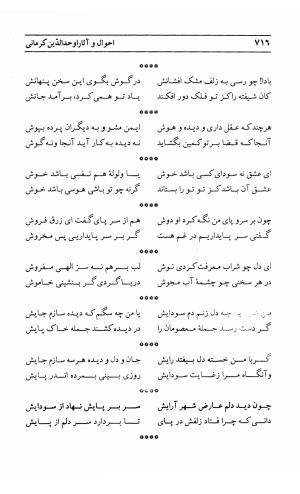 ۷۱۶
احوال و آثار اوحدالدّین کرمانی
****
بادا! چو رسی به زلف مشک افشانش در گوش بگوی این سخن پنهانش
کان شیفته راکز تو فلک دور افکند یاد تو همی کرد، برآمد جانش
****
هرچند که عقل داری و دیده و هوش ایمن مشو و به دیگران پرده بپوش
آنجا که قضا بر تو کمین بگشاید نه دیده به کار آید آنجا و نه گوش
****
ای عشق نه سودای کسی باشد خوش یا ولولهٔ هم نفسی باشد خوش
عشق آن باشد کز تو تو را بستاند گرنه چو تو باشی هوسی باشد خوش
****
چون بر سر و پای من نگه کرد او دوش هم از سر پای گفت ای زرق فروش
گفتی سر پایداریم در غم هست گر بر سر پایداریی پس مخروش
****
ای دل چو شراب معرفت کردی نوش لب بر هم نه سرّ الهی مفروش
در هر سخنی چو چشمهٔ آب مجوش دریا گردی گر بنشینی خاموش
****
چه دل زنم دم سودایش یا من چه سگم که دیده سازم جایش
گر دست رسد جملهٔ معصومان را در دیده کشند جمله خاک پایش
****
گر با من خسته دل بیفتد رایش جان و دل و دیده هر سه سازم جایش
وآنگاه مرا ز غایت سودایش روزی بینی بمرده اندر پایش
****
چون دید دلم عارض شهر آرایش سر بر پایش نهاد از سودایش
دانی که چرا فتاد زلفش در پای تا بردارد سر دلم از پایش
****